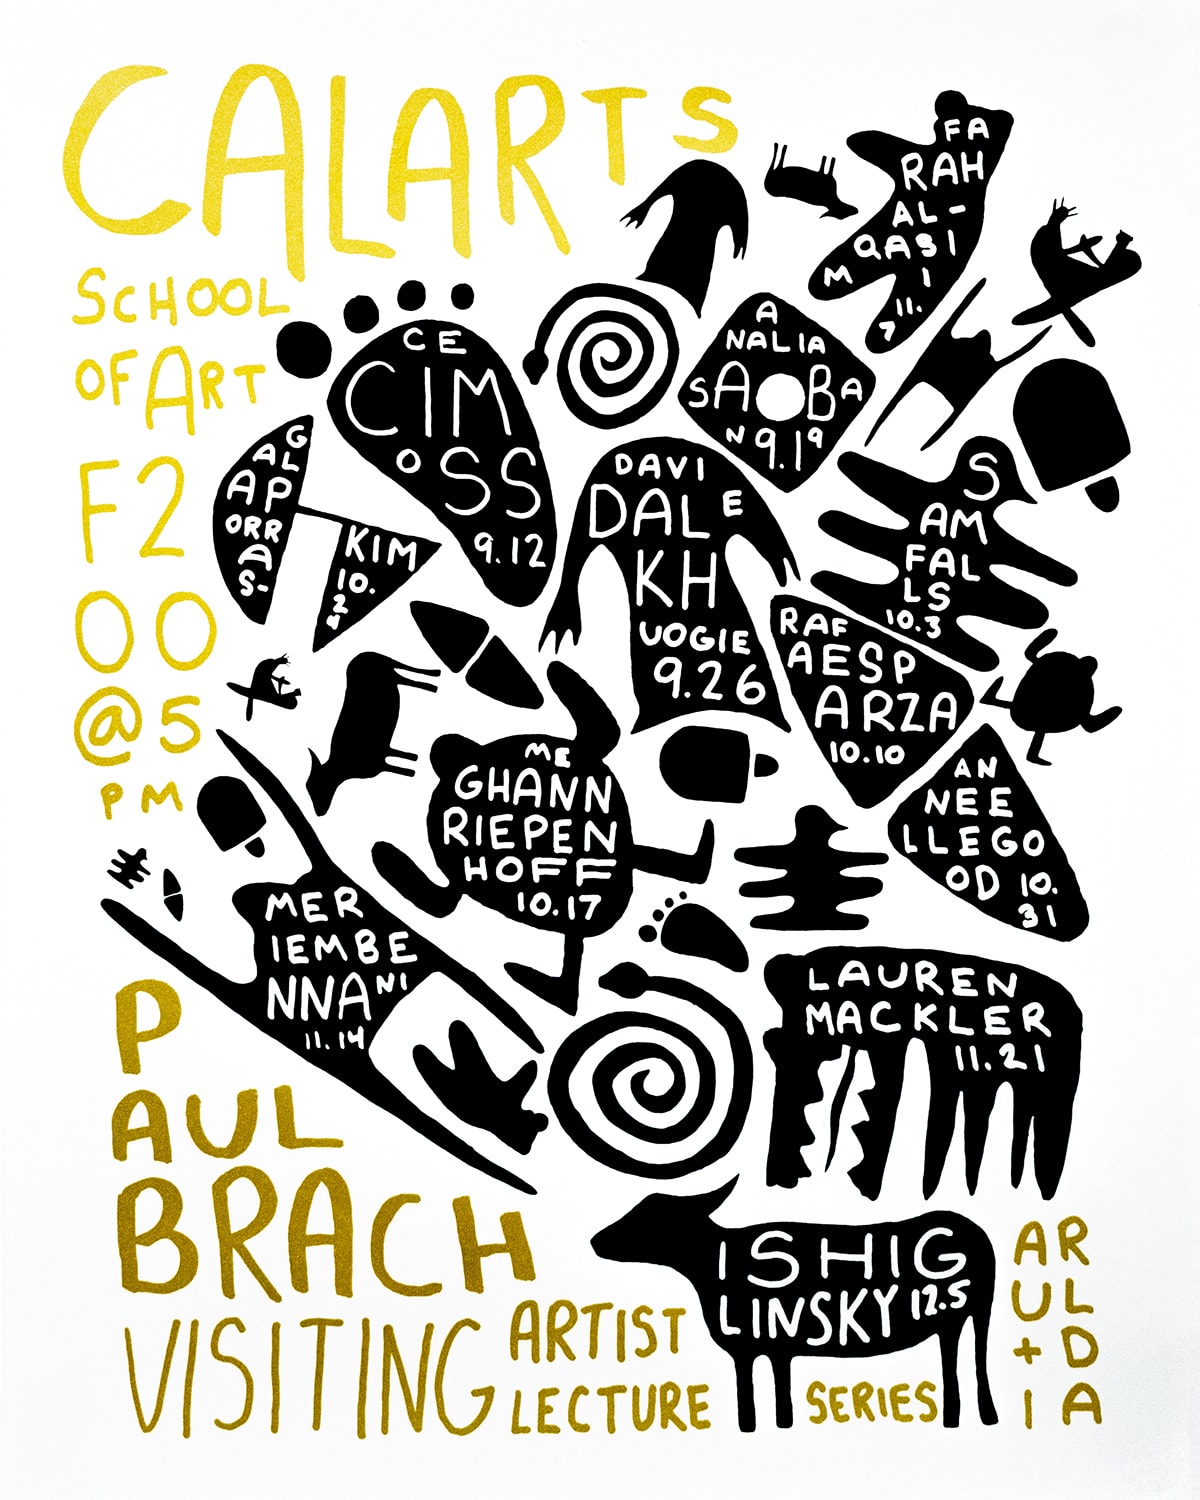 CALARTS
SCHOOL
OF ART
F2
00
@5
PM
FA
RAH
AL-
QASI
M I
11.
7
CE
CIM
OSS
9.12
A
NALIA
SABA
N 9.19
GAL
APORRAS-
KIM
10.
24
DAVI
DALE
KH
UOGIE
9.26
S
AM
FAL
LS
10.3
RAF
AESP
ARZA
10.10
ME
GHANN
RIEPEN
HOFF
10.17
AN
NEE
LLEGO
OD 10.
31
MER
IEMBE
NNANI
11.14
LAUREN
MACKLER
11.21
P
AUL
BRACH
VISITING
ARTIST
LECTURE
SERIES
ISHIG
LINSKY 12.5
AR
UL
+D
IA